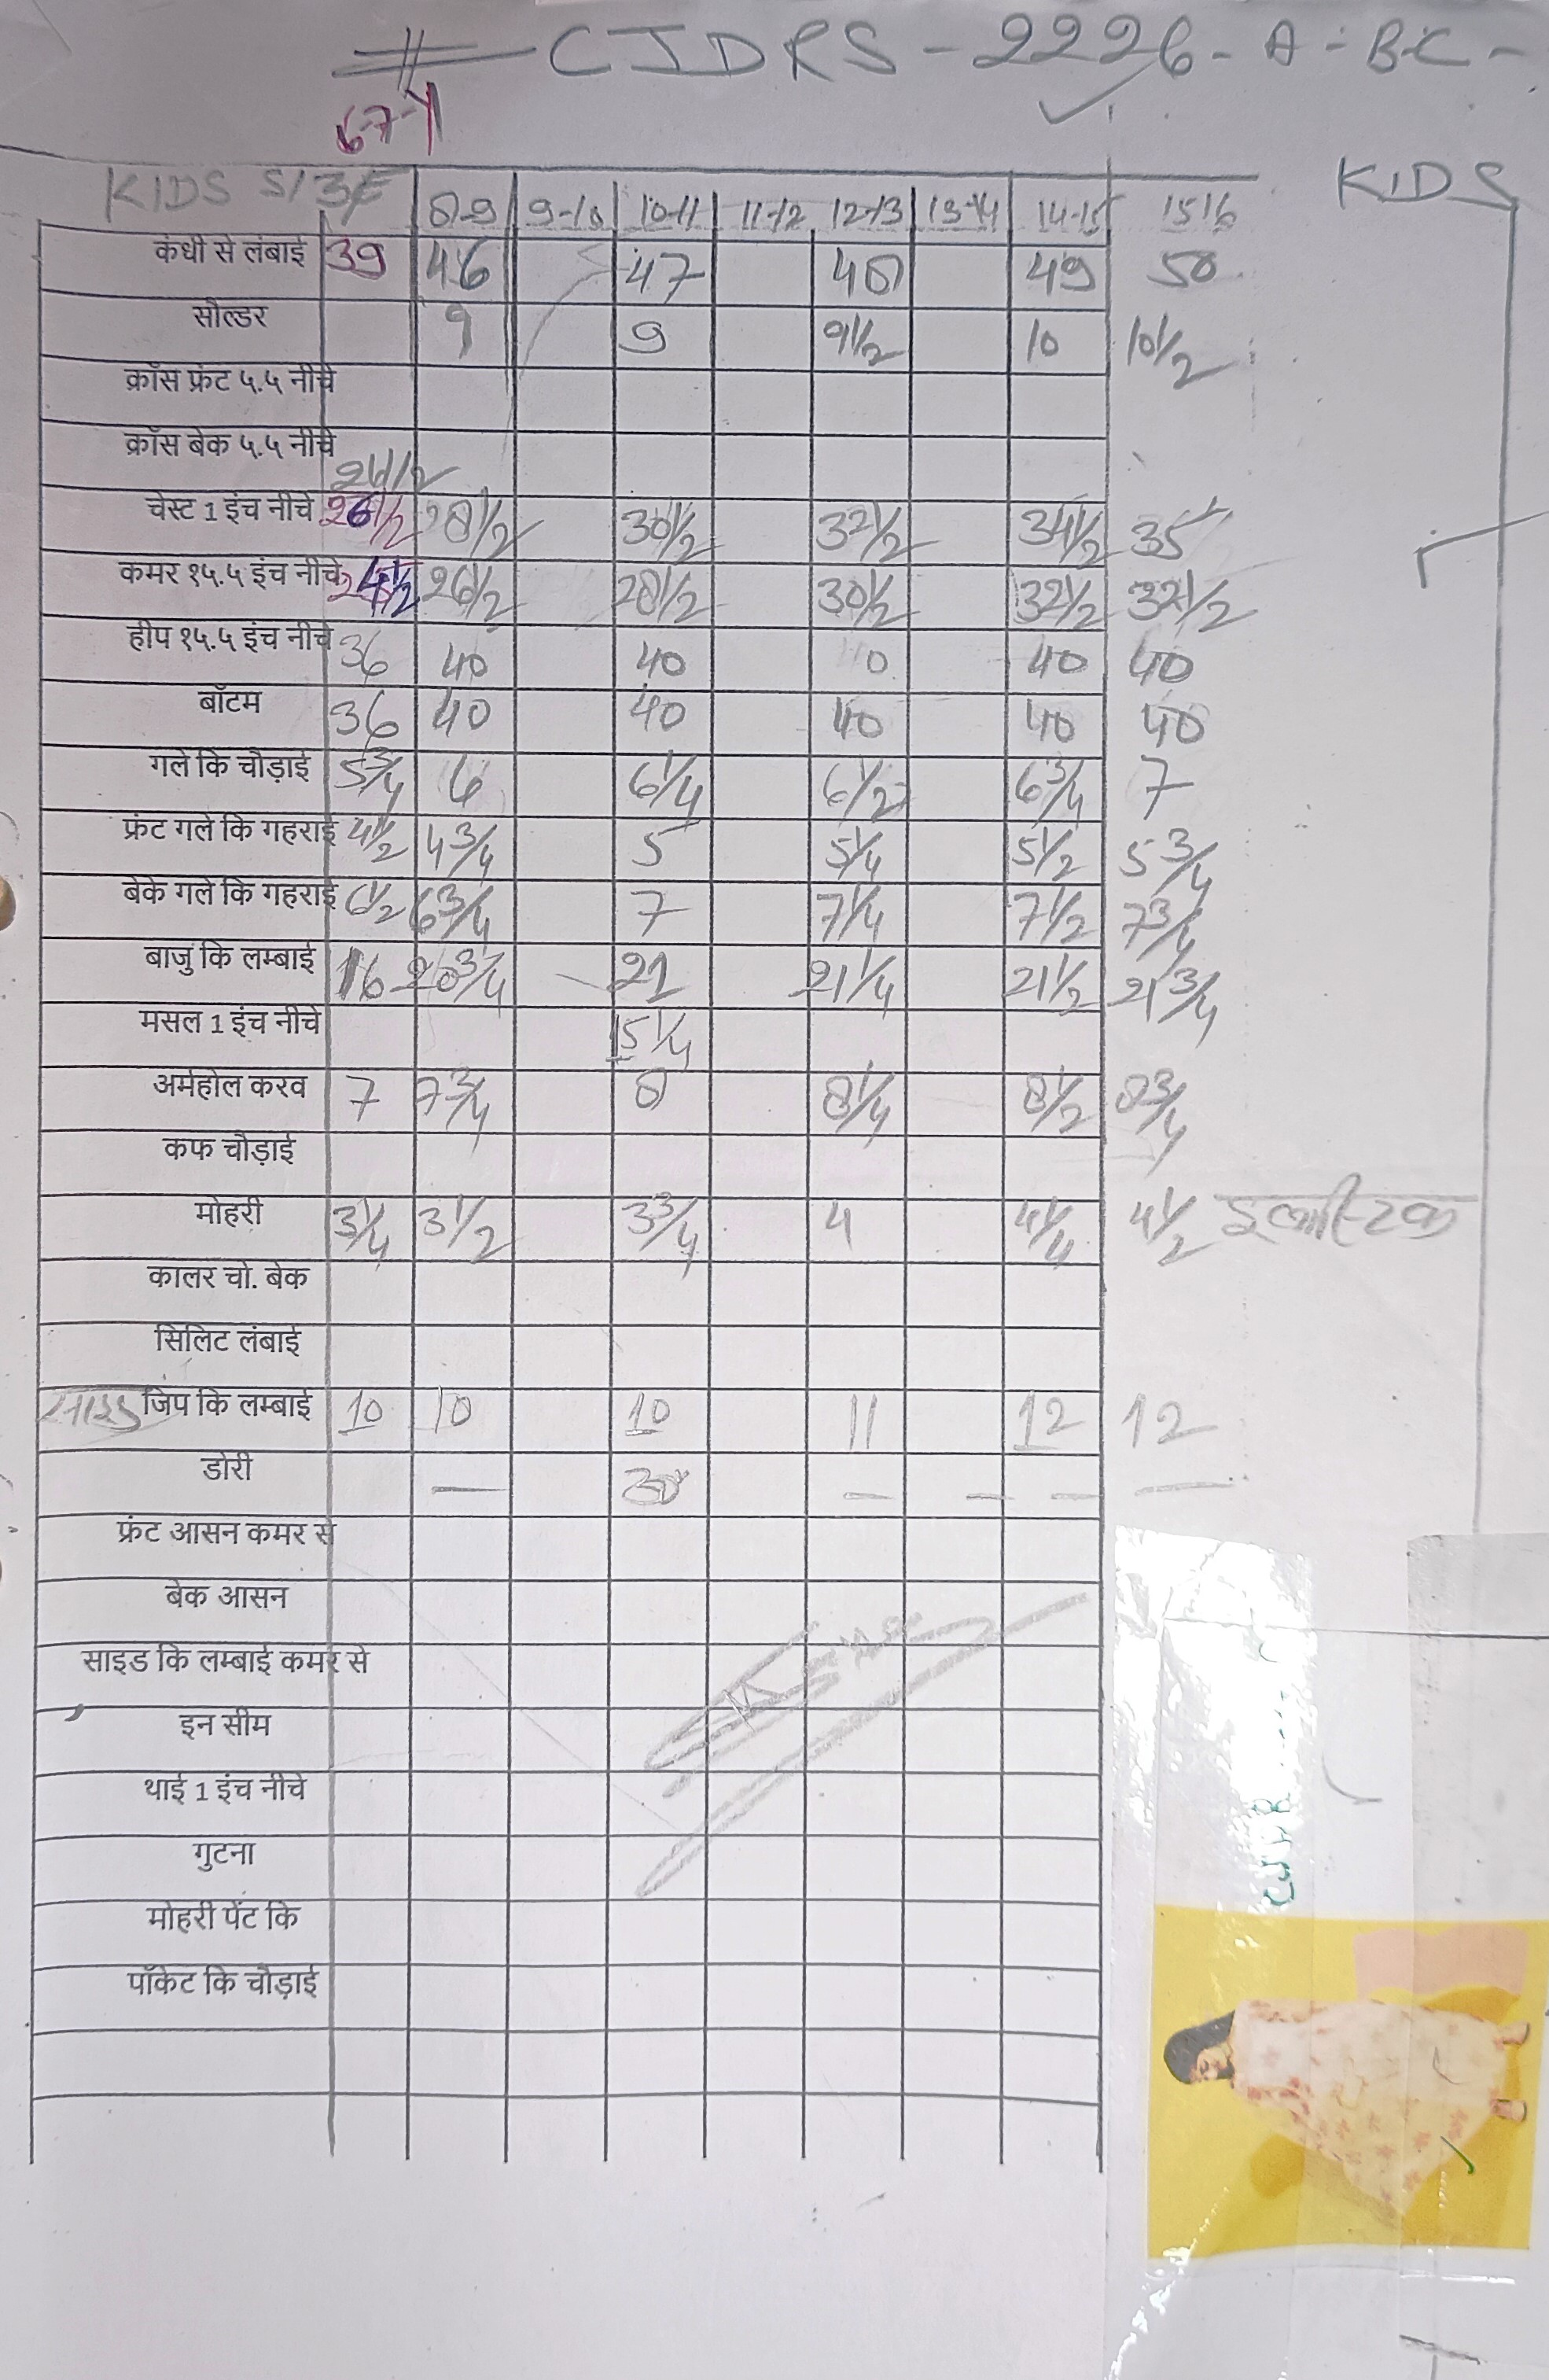 CJDRS-2226-A-B-C-
6-7-Y
KIDS
KIDS SIZE 8-9 9-10 10-11 11-12 12-13 13-14 14-15 15 16
कंधी से लंबाई 39 46 47 48 49 50
सौल्डर 9 9 9 1/2 10 10 1/2
क्रॉस फ्रंट ५.५ नीचे
क्रॉस बेक ५.५ नीचे
26 1/2
चेस्ट 1 इंच नीचे 26 1/2 28 1/2 30 1/2 32 1/2 34 1/2 35
कमर १५.५ इंच नीचे 24 1/2 26 1/2 28 1/2 30 1/2 32 1/2 32 1/2
हीप १५.५ इंच नीचे 36 40 40 40 40
बॉटम 36 40 40 40 40 40
गले कि चौड़ाई 5 3/4 6 6 1/4 6 1/2 6 3/4 7
फ्रंट गले कि गहराई 4 1/2 4 3/4 5 5 1/4 5 1/2 5 3/4
बेके गले कि गहराई 6 1/2 6 3/4 7 7 1/4 7 1/2 7 3/4
बाजु कि लम्बाई 16 20 3/4 21 21 1/4 21 1/2 21 3/4
मसल 1 इंच नीचे 15 1/4
अर्महोल करव 7 7 3/4 8 8 1/4 8 1/2 8 3/4
कफ चौड़ाई
मोहरी 3 1/4 3 1/2 3 3/4 4 4 1/4 4 1/2 इलास्टिक
कालर चो. बेक
सिलिट लंबाई
साइड जिप कि लम्बाई 10 10 10 11 12 12
डोरी — 30 — — — —
फ्रंट आसन कमर से
बेक आसन
साइड कि लम्बाई कमर से
इन सीम
थाई 1 इंच नीचे
गुटना
मोहरी पेंट कि
पॉकेट कि चौड़ाई